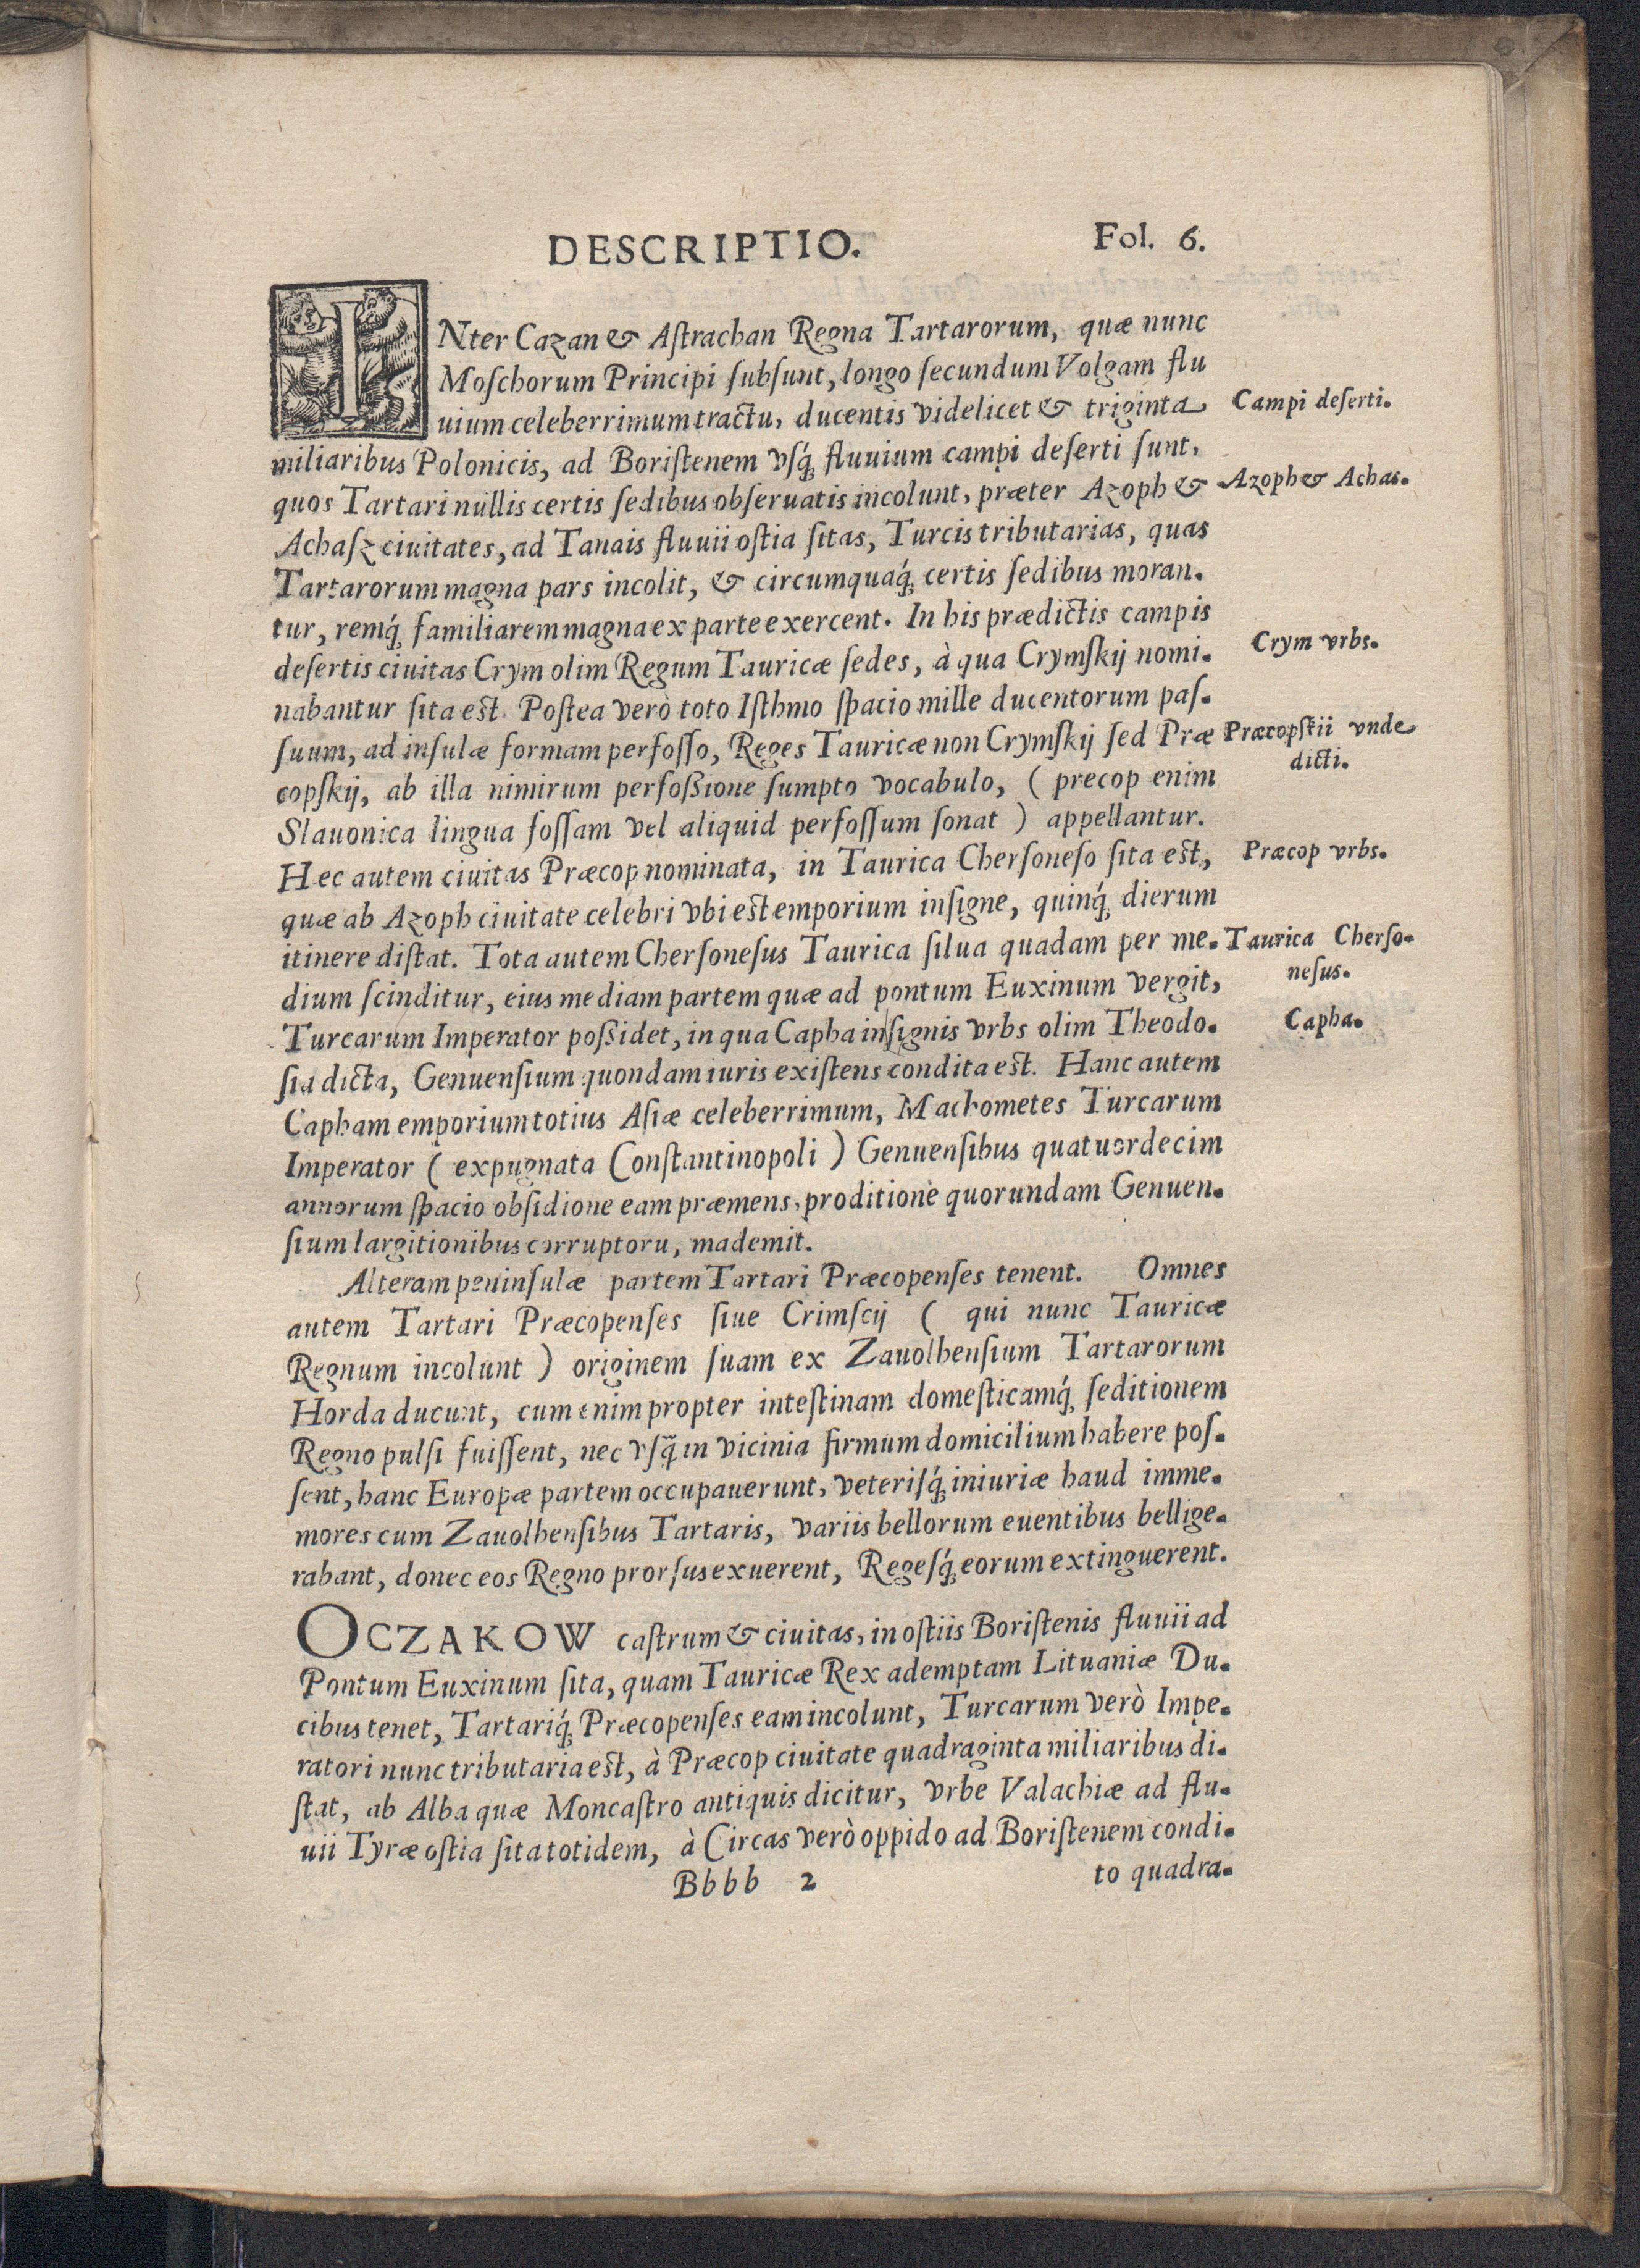 DESCRIPTIO. Fol. 6.
INter Cazan & Aſtrachan Regna Tartarorum, quæ nunc
Moſchorum Principi ſubſunt, longo ſecundum Volgam flu
uium celeberrimum tractu, ducentis videlicet & triginta
Campi deſerti.
miliaribus Polonicis, ad Boriſtenem vſq́; fluuium campi deſerti ſunt,
quos Tartari nullis certis ſedibus obſeruatis incolunt, præter Azoph &
Azoph & Achas.
Achaſz ciuitates, ad Tanais fluuii oſtia ſitas, Turcis tributarias, quas
Tartarorum magna pars incolit, & circumquaq́; certis ſedibus moran-
tur, remq́; familiarem magna ex parte exercent. In his prædictis campis
deſertis ciuitas Crym olim Regum Tauricæ ſedes, à qua Crymſkij nomi-
Crym vrbs.
nabantur ſita eſt. Poſtea verò toto Iſthmo ſpacio mille ducentorum paſ-
ſuum, ad inſulæ formam perfoſſo, Reges Tauricæ non Crymſkij ſed Præ
Præcopſkii vnde
dicti.
copſkij, ab illa nimirum perfoßione ſumpto vocabulo, ( precop enim
Slauonica lingua foſſam vel aliquid perfoſſum ſonat ) appellantur.
Hec autem ciuitas Præcop nominata, in Taurica Cherſoneſo ſita eſt,
Præcop vrbs.
quæ ab Azoph ciuitate celebri vbi eſt emporium inſigne, quinq́; dierum
itinere diſtat. Tota autem Cherſoneſus Taurica ſilua quadam per me-
Taurica Cherſo-
neſus.
dium ſcinditur, eius mediam partem quæ ad pontum Euxinum vergit,
Turcarum Imperator poßidet, in qua Capha inſignis vrbs olim Theodo-
Capha.
ſia dicta, Genuenſium quondam iuris exiſtens condita eſt. Hanc autem
Capham emporium totius Aſiæ celeberrimum, Machometes Turcarum
Imperator ( expugnata Conſtantinopoli ) Genuenſibus quatuordecim
annorum ſpacio obſidione eam præmens, proditione quorundam Genuen-
ſium largitionibus corruptoru, mademit.
Alteram peninſulæ partem Tartari Præcopenſes tenent. Omnes
autem Tartari Præcopenſes ſiue Crimſcij ( qui nunc Tauricæ
Regnum incolunt ) originem ſuam ex Zauolhenſium Tartarorum
Horda ducunt, cum enim propter inteſtinam domeſticamq́; ſeditionem
Regno pulſi fuiſſent, nec vſq̃ in vicinia firmum domicilium habere poſ-
ſent, hanc Europæ partem occupauerunt, veteriſq́; iniuriæ haud imme-
mores cum Zauolhenſibus Tartaris, variis bellorum euentibus bellige-
rabant, donec eos Regno prorſus exuerent, Regeſq́; eorum extinguerent.
OCZAKOW caſtrum & ciuitas, in oſtiis Boriſtenis fluuii ad
Pontum Euxinum ſita, quam Tauricæ Rex ademptam Lituaniæ Du-
cibus tenet, Tartariq́; Præcopenſes eam incolunt, Turcarum verò Impe-
ratori nunc tributaria eſt, à Præcop ciuitate quadraginta miliaribus di-
ſtat, ab Alba quæ Moncaſtro antiquis dicitur, vrbe Valachiæ ad flu-
uii Tyræ oſtia ſita totidem, à Circas verò oppido ad Boriſtenem condi-
Bbbb 2 to quadra-